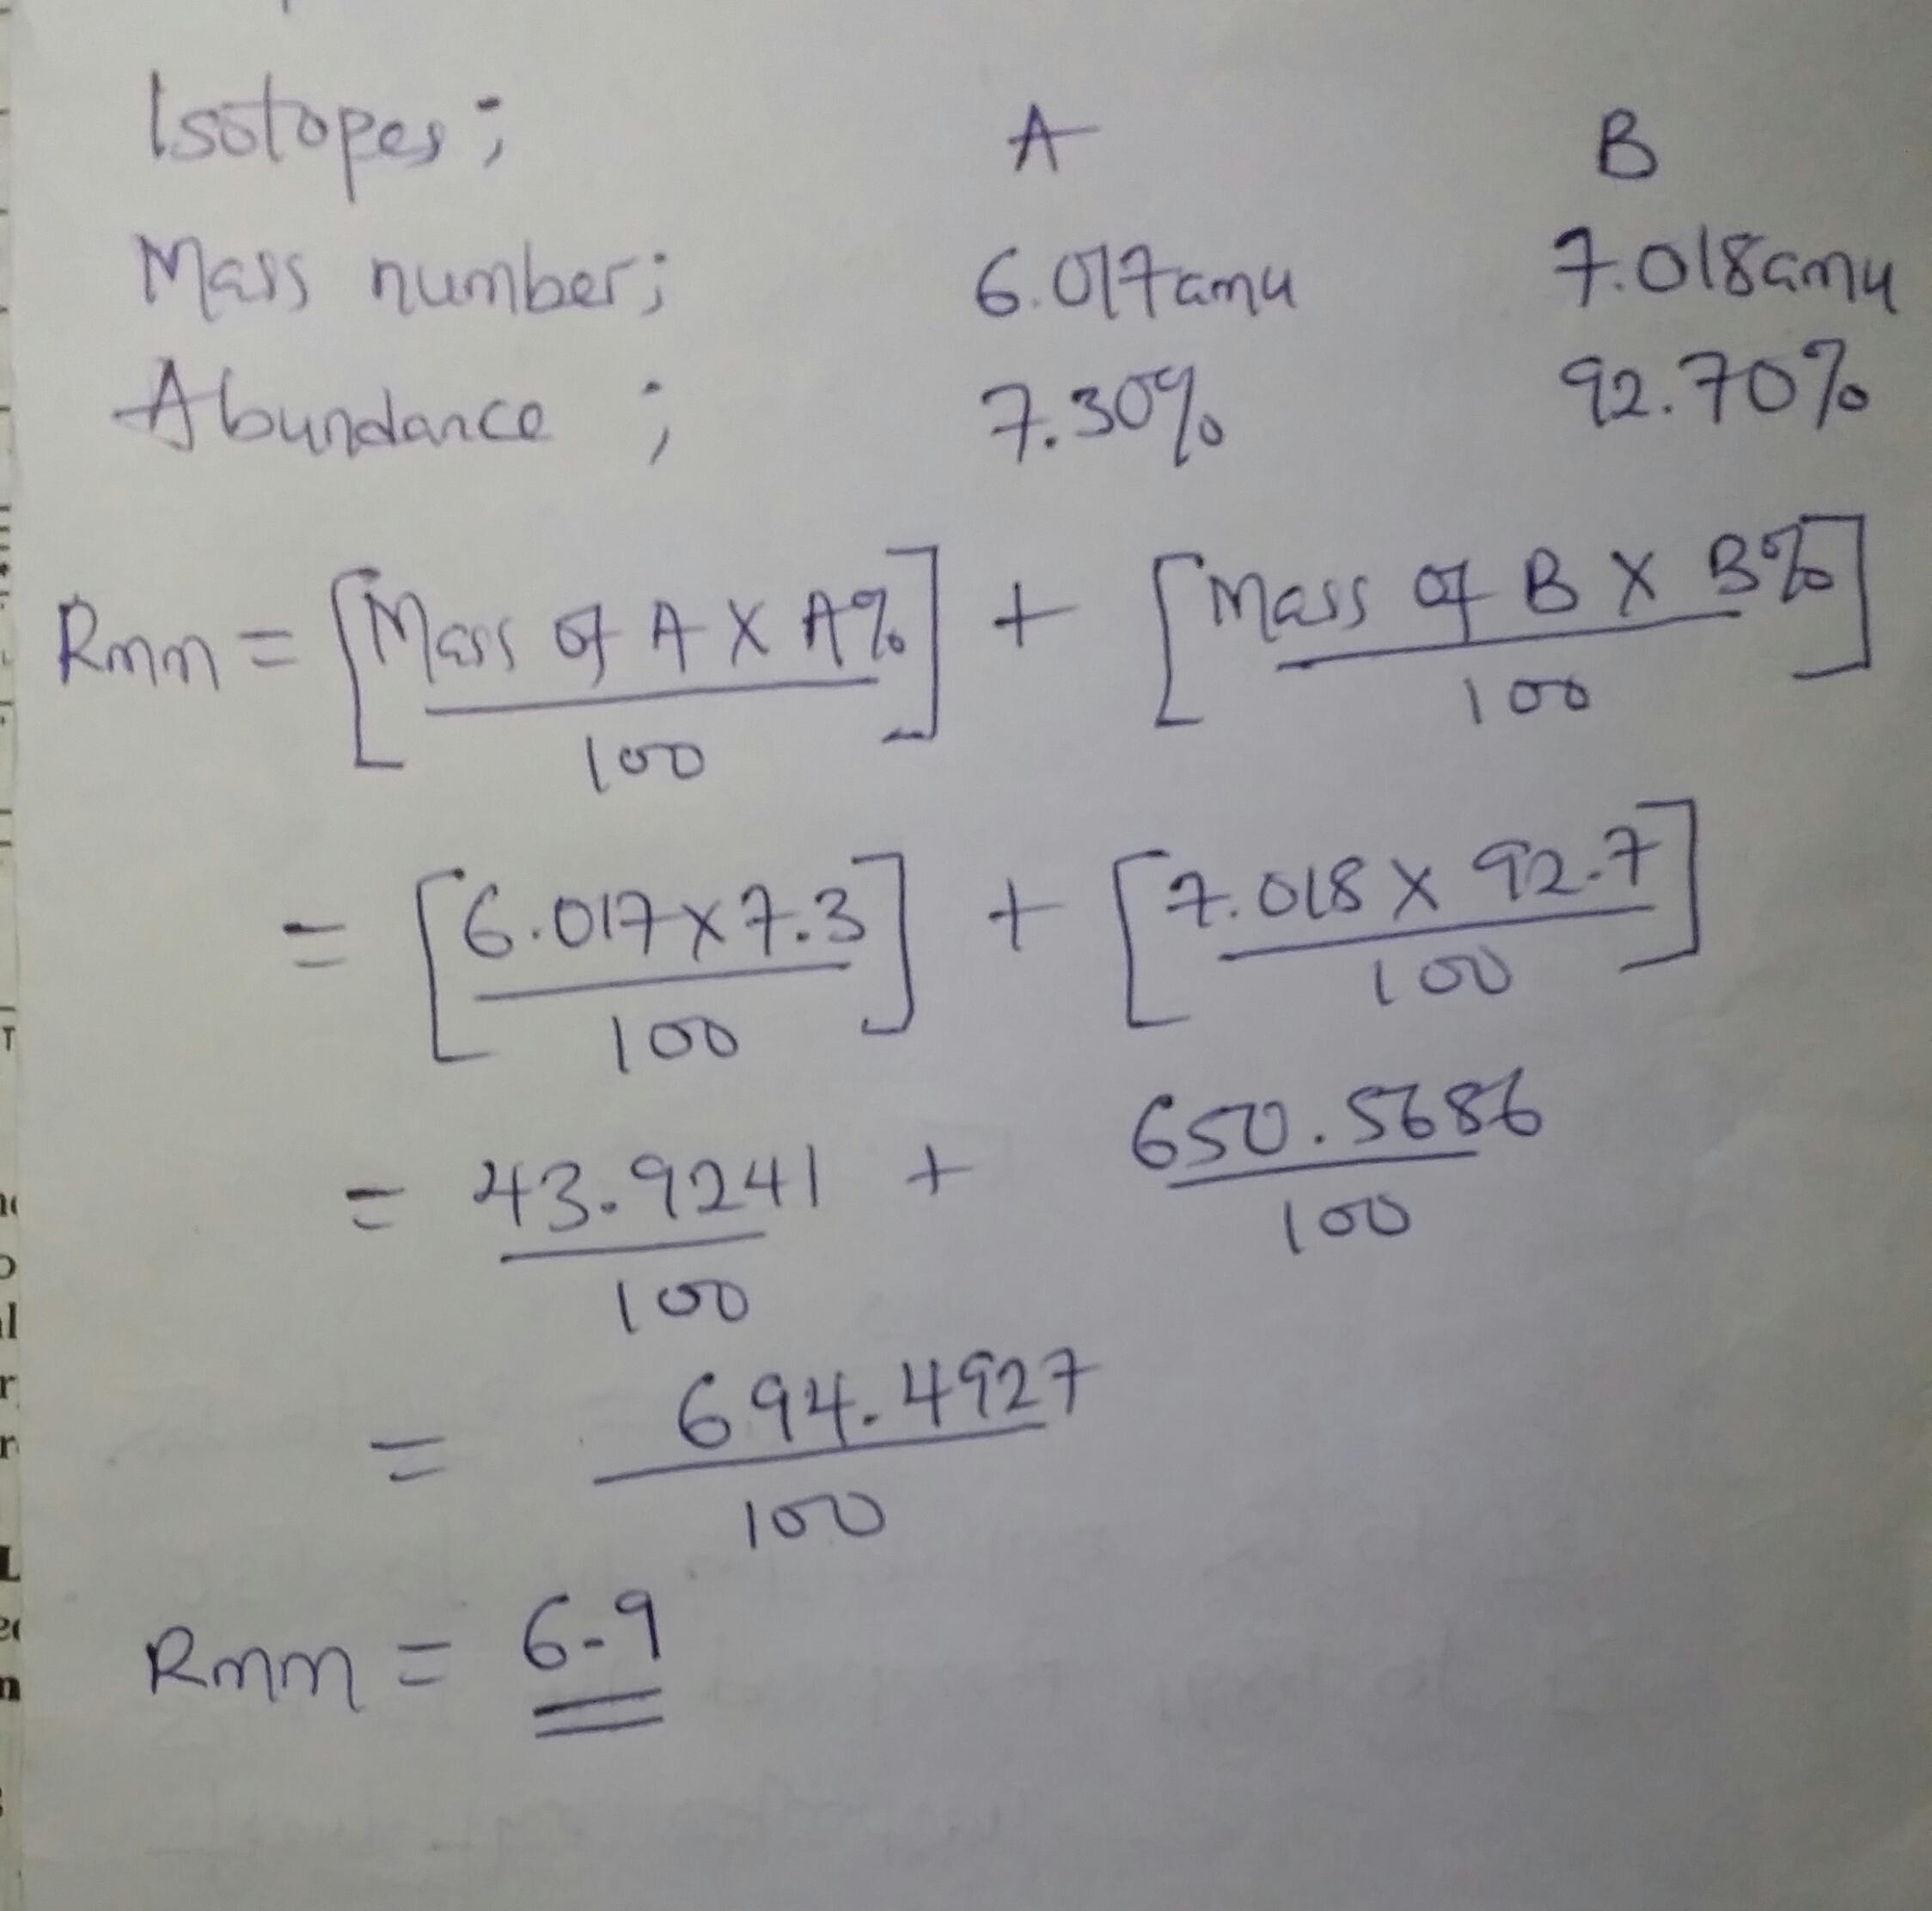 Isotopes; A B
Mass number; 6.017amu 7.018amu
Abundance ; 7.30% 92.70%
Rmm = [Mass of A X A% / 100] + [Mass of B X B% / 100]
= [6.017 x 7.3 / 100] + [7.018 x 92.7 / 100]
= 43.9241 / 100 + 650.5686 / 100
= 694.4927 / 100
Rmm = 6.9